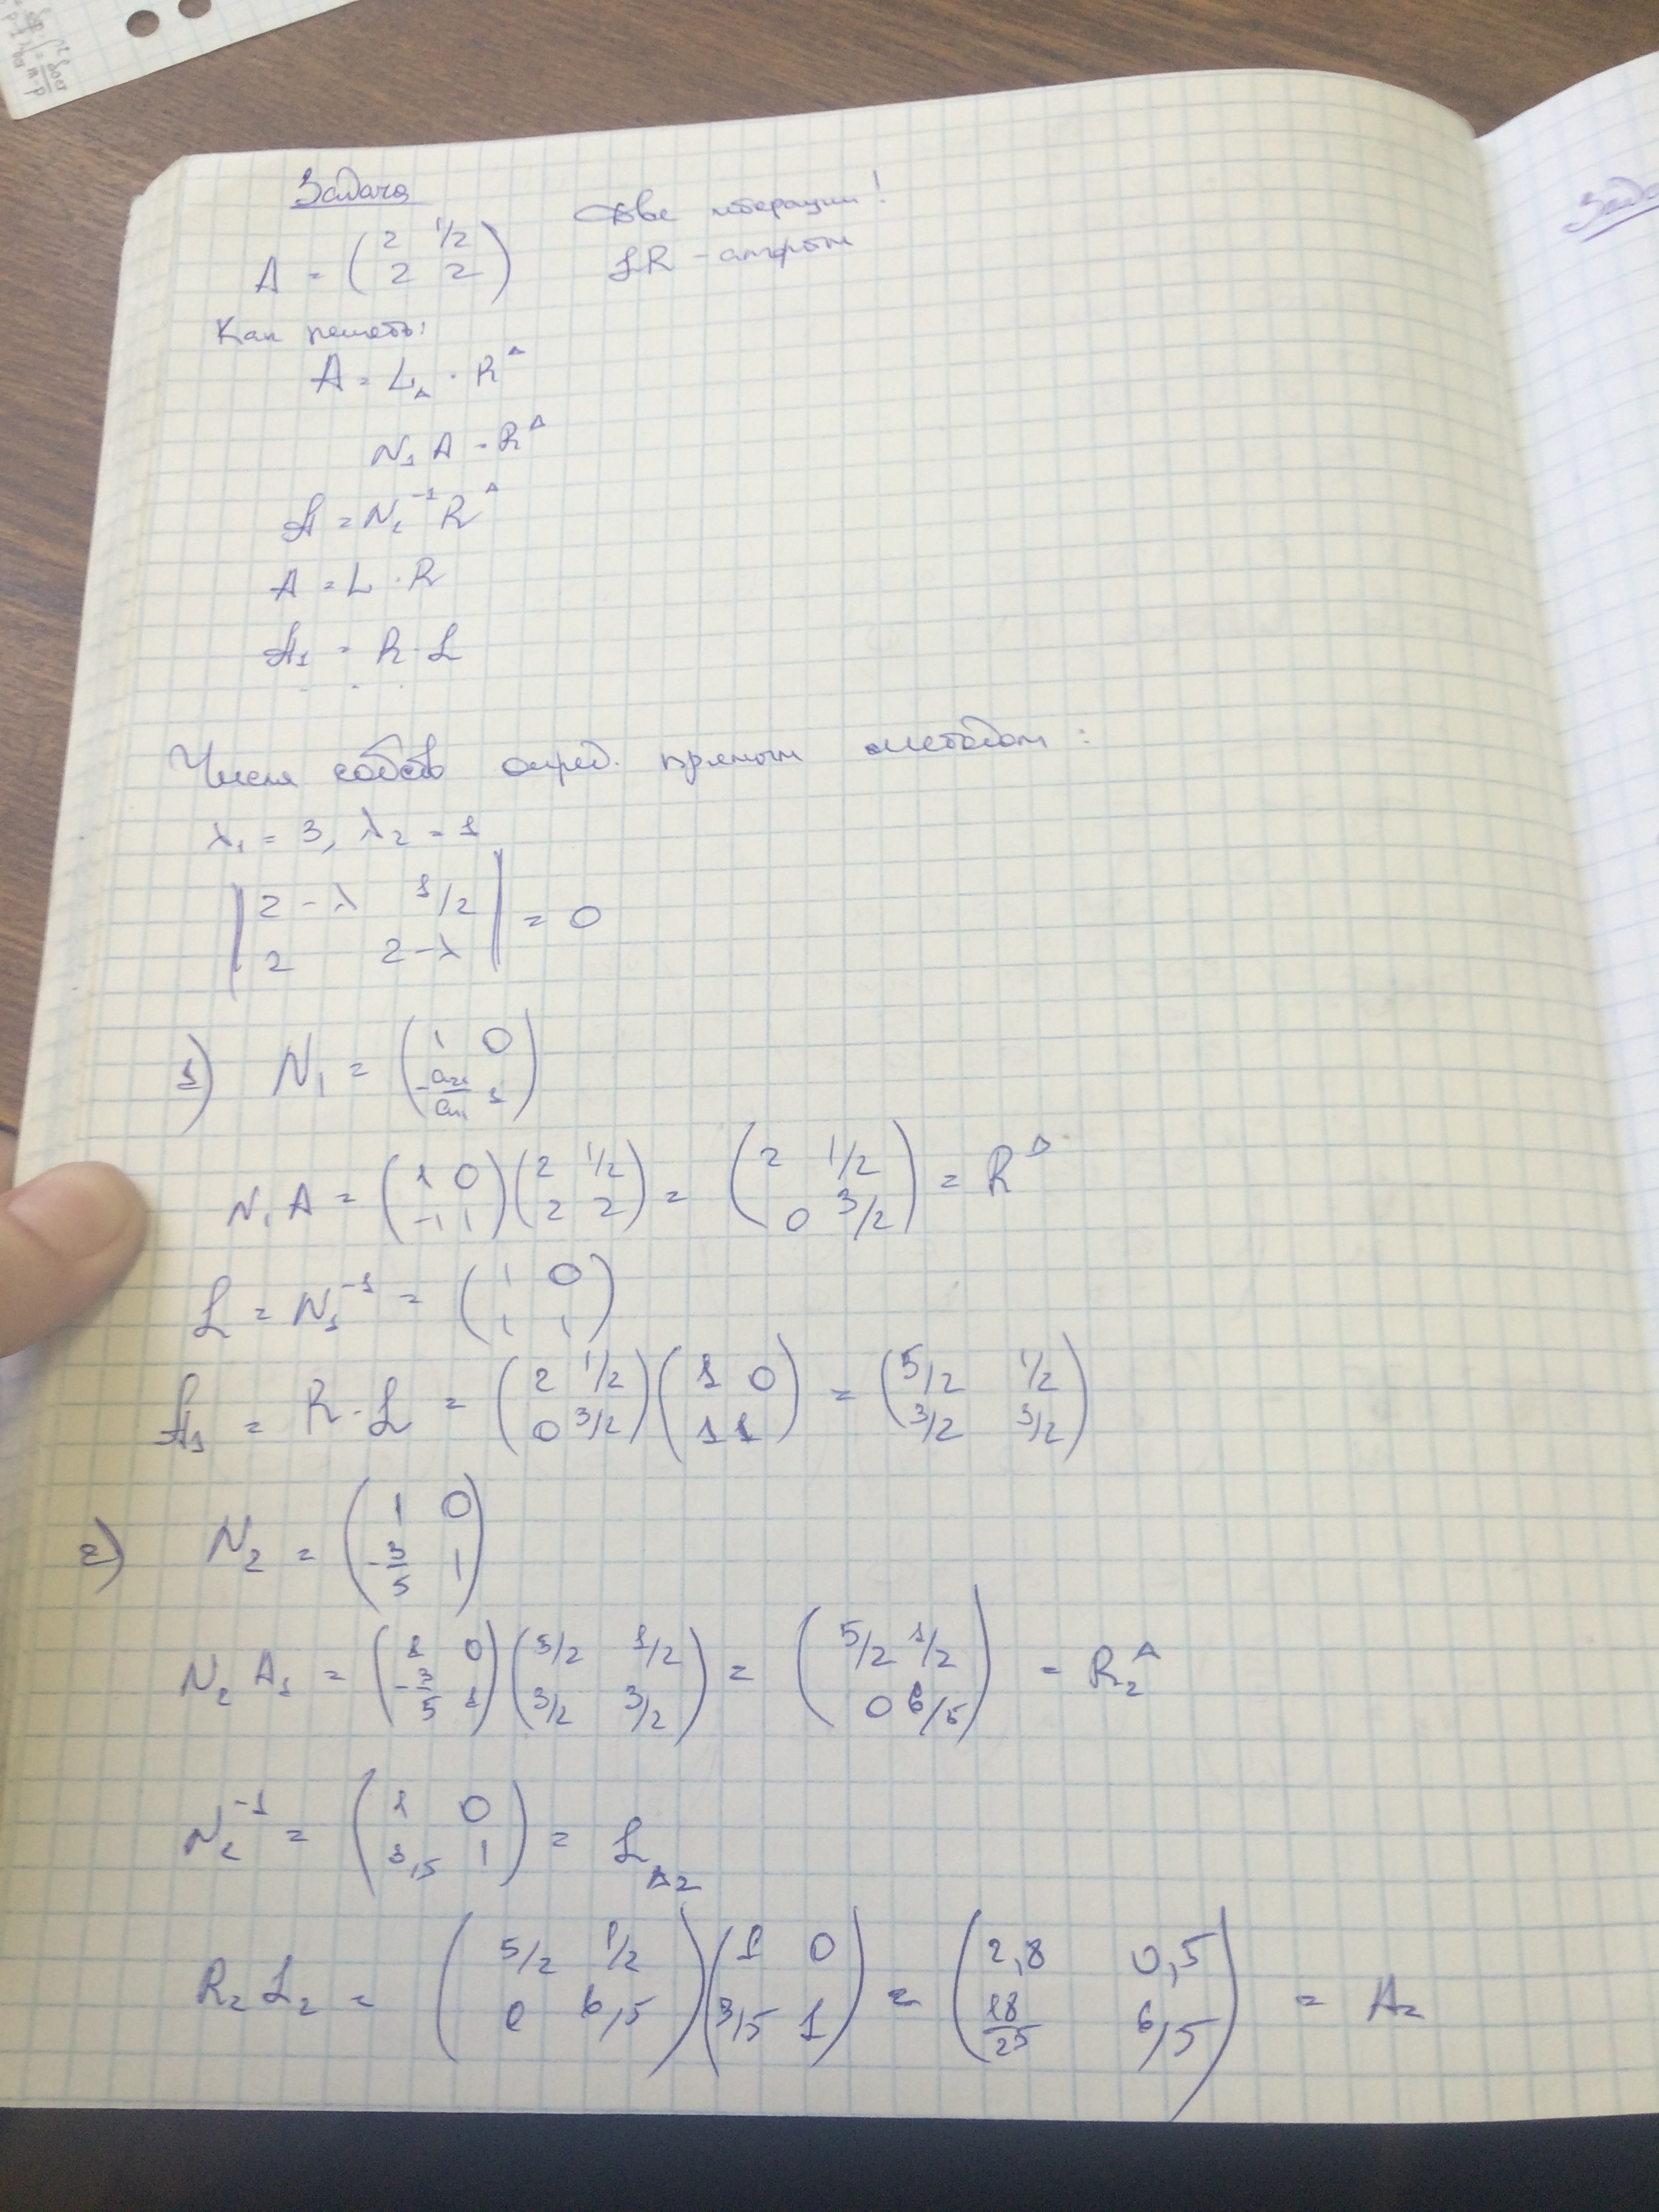 Задача
A = ( 2 1/2 ; 2 2 ) Две итерации!
LR - алгоритм
Как решать:
A = L_Δ · R^Δ
N_1 A = R^Δ
A = N_1^{-1} R^Δ
A = L · R
A_1 = R · L
. . .
Числа собств опред. прямым методом:
λ_1 = 3, λ_2 = 1
| 2-λ 1/2 ; 2 2-λ | = 0
1) N_1 = ( 1 0 ; -a_21/a_11 1 )
N_1 A = ( 1 0 ; -1 1 ) ( 2 1/2 ; 2 2 ) = ( 2 1/2 ; 0 3/2 ) = R^Δ
L = N_1^{-1} = ( 1 0 ; 1 1 )
A_1 = R · L = ( 2 1/2 ; 0 3/2 ) ( 1 0 ; 1 1 ) = ( 5/2 1/2 ; 3/2 3/2 )
2) N_2 = ( 1 0 ; -3/5 1 )
N_2 A_1 = ( 1 0 ; -3/5 1 ) ( 5/2 1/2 ; 3/2 3/2 ) = ( 5/2 1/2 ; 0 6/5 ) = R_2^Δ
N_2^{-1} = ( 1 0 ; 3/5 1 ) = L_Δ2
R_2 L_2 = ( 5/2 1/2 ; 0 6/5 ) ( 1 0 ; 3/5 1 ) = ( 2,8 0,5 ; 18/25 6/5 ) = A_2